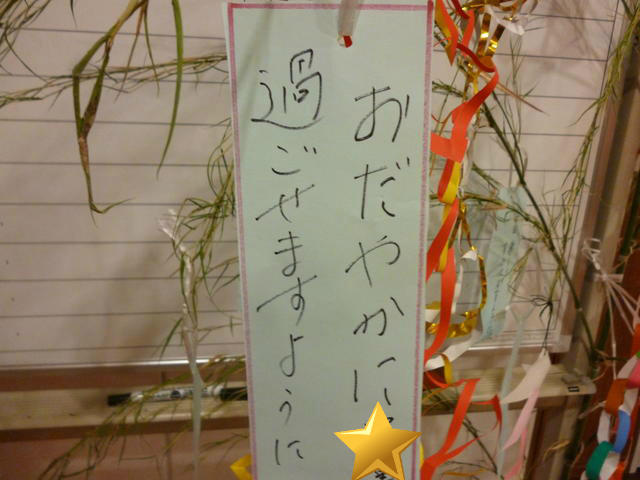 おだやかに
過ごせますように